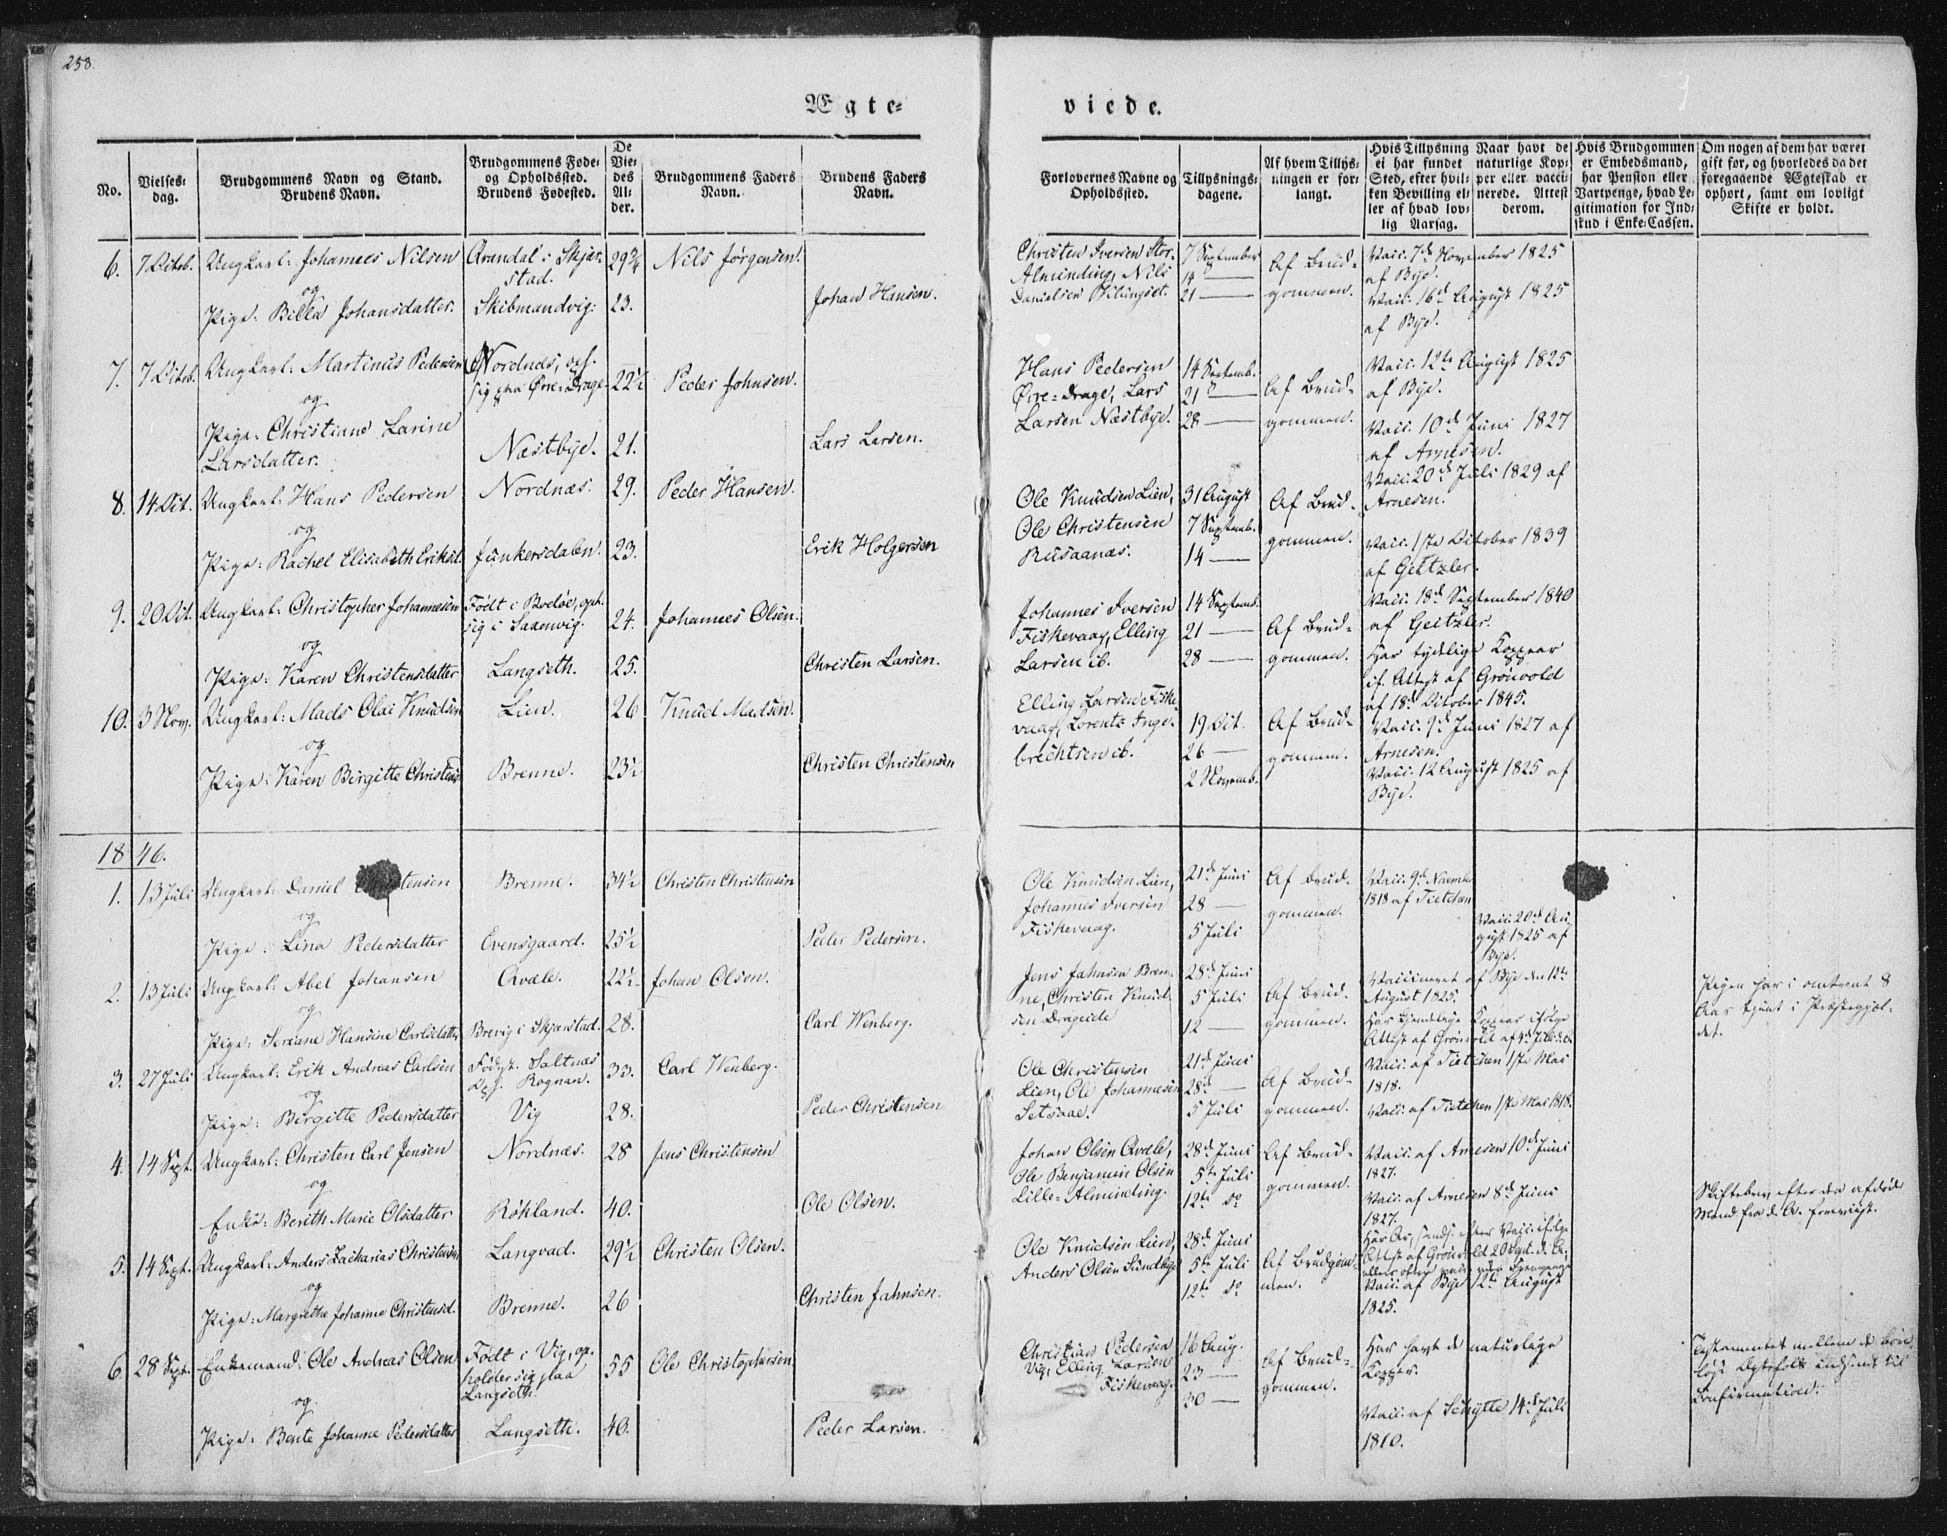 258.
Ægte=
viede.
No.
Vielses-
dag.
Brudgommens Navn og Stand.
Brudens Navn.
Brudgommens Føde-
og Opholdssted.
Brudens Fødested.
De
Vie-
des
Al-
der.
Brudgommens Faders
Navn.
Brudens Faders
Navn.
Forlovernes Navne og
Opholdssted.
Tillysnings-
dagene.
Af hvem Tillys-
ningen er for-
langt.
Hvis Tillysning
ei har fundet
Sted, efter hvil-
ken Bevilling el-
ler af hvad lov-
lig Aarsag.
Naar havt de
naturlige Kop-
per eller vacci-
nerede. Attest
derom.
Hvis Brudgommen
er Embedsmand,
har Pension eller
Vartpenge, hvad Le-
gitimation for Ind-
skud i Enke-Cassen.
Om nogen af dem har været
gift før, og hvorledes da det
foregaaende Ægteskab er
ophørt, samt om lovligt
Skifte er holdt.
6. 7 Octob. Ungkarl: Johannes Nilsen
og
Pige: Billa Johansdatter.
Arandal i Skjær-
stad.
Skibmandvig.
29¾
23.
Nils Jørgensen.
Johan Hansen.
Christen Iversen Stor-
Alminding, Nils
Danielsen
7 September
14 —
21 —
Af Brud-
gommen.
Vacc. 7d November 1825
af Bye.
Vacc. 16d August 1825
af Bye.
7. 7 Octob. Ungkarl: Martinus Pedersen
og
Pige: Christiane Larine
Larsdatter.
Nordnæs, oph.
sig paa Øvre-Drage.
Næstbye.
22½
21.
Peder Johnsen.
Lars Larsen.
Hans Pedersen
Øvre-Drage, Lars
Larsen Næstbye.
14 Septemb.
21 —
28 —
Af Brud-
gommen.
Vacc. 12te August 1825
af Bye.
Vacc. 10d Juni 1827
af Arnesen.
8. 14 Oct. Ungkarl: Hans Pedersen
og
Pige: Rachel Elisabeth Eriksd.
Nordnæs.
Junkersdalen.
29.
23.
Peder Hansen.
Erik Holgersen
Ole Knudsen Lien,
Ole Christensen
Rusaanæs.
31 August
7 Septemb.
14 —
Af Brud-
gommen.
Vacc. 20d Juli 1829 af
Arnesen.
Vacc. 1ste October 1839
af Geitzler.
9. 20 Oct. Ungkarl: Christopher Johannesen
og
Pige: Karen Christensdatter
Født i Bodøe, oph.
sig i Saxenvig.
Langseth.
24.
25.
Johannes Olsen.
Christen Larsen.
Johannes Iversen
Fiskevaag, Elling
Larsen ib.
14 Septemb.
21 —
28 —
Af Brud-
gommen.
Vacc. 18d September 1840
af Geitzler.
Har tydelige Kopper
if. Attest af Grønvold
af 18d October 1845.
10. 3 Nov. Ungkarl: Mads Olai Knudsen
og
Pige: Karen Birgitte Christens
Lien.
Brenne.
26
23½
Knud Madsen.
Christen Christensen
Elling Larsen Fiske-
vaag, Lorents Inge-
brechtsen ib.
19 Oct.
26 —
2 Novemb.
Af Brud-
gommen.
Vacc. 9d Juni 1827 af
Arnesen.
Vacc. 12 August 1825 af
Bye.
1846.
1. 13 Juli Ungkarl: Daniel
og
Pige: Lina Pedersdatter
Brenne.
Evensgaard.
34½
25½
Christen Christensen
Peder Pedersen.
Ole Knudsen Lien,
Johannes Iversen
Fiskevaag.
21de Juni
28 —
5 Juli
Af Brud-
gommen.
Vacc. 9d Novemb
1818 af Tietchen
Vacc. 20d Au-
gust 1825 af
Bye.
2. 13 Juli Ungkarl: Abel Johansen
og
Pige: Seriane Hansine Carlsdatter
Qvæle.
Brevig i Skjærstad.
22½
28.
Johan Olsen.
Carl Wenberg.
Jens Jahnsen Bren-
ne, Christen Knud-
sen Drageide
28de Juni
5 Juli
12 —
Af Brud-
gommen.
Vaccineret af Bye den 12te
August 1825.
Har kjendelige Kopper ifølge
Attest af Grønvold af 4d Juli d. A.
Pigen har i omtrent 8
Aar tjent i Præstegjæl-
det.
3. 27 Juli Ungkarl: Erik Andreas Carlsen
og
Pige: Birgitte Pedersdatter
Født. Saltnæs
Oph. Rognan.
Vig
33.
28.
Carl Wenberg.
Peder Christensen
Ole Christensen
Lien, Ole Johannesen
Setsaae.
21de Juni
28d —
5 Juli
Af Brud-
gommen.
Vacc. af Tietchen 1ste Mai
1818.
Vacc. af Tietchen 1ste Mai 1818.
4. 14 Sept. Ungkarl: Christen Carl Jensen
og
Enke: Berith Marie Olsdatter
Nordnæs.
Røkland.
28
40.
Jens Christensen
Ole Olsen.
Johan Olsen Qvæle,
Ole Benjamin Olsen
Lille-Alminding.
28d Juni
5te Juli
12te do
Af Brud-
gommen.
Vacc. af Arnesen 10d Juni
1827.
Vacc. af Arnesen 8d Juni
1827.
Skiftebrev efter den afdøde
Mand fra d. A. foreviist.
5. 14 Sept. Ungkarl: Anders Zacharias Christensen
og
Pige: Margrethe Johanne Christensd.
Langvad.
Brenne.
29½
26
Christen Olsen.
Christen Jahnsen.
Ole Knudsen Lien,
Anders Olsen Sundbye
28d Juni
5te Juli
12te do
Af Brudgom-
men.
Har Ar, efter Vacc. ifølge
Attest af Grønvold 20 Sept. d. A.
Vacc. af Bye 12te August
1825.
6. 28 Sept. Enkemand: Ole Andreas Olsen
og
Pige: Bente Johanne Pedersdatter
Født i Vig, op-
holder sig paa
Langseth.
Langseth.
55
40.
Ole Christophersen
Peder Larsen.
Christian Pedersen
Vig, Elling Larsen
Fiskevaag.
16 Aug.
23 —
30 —
Af Brud-
gommen.
Har havt de naturlige
Kopper.
Vacc. af Schytte 14d Juli
1810.
Testamentet mellem de barn-
løse Ægtefolk indsendt til
Confirmation.